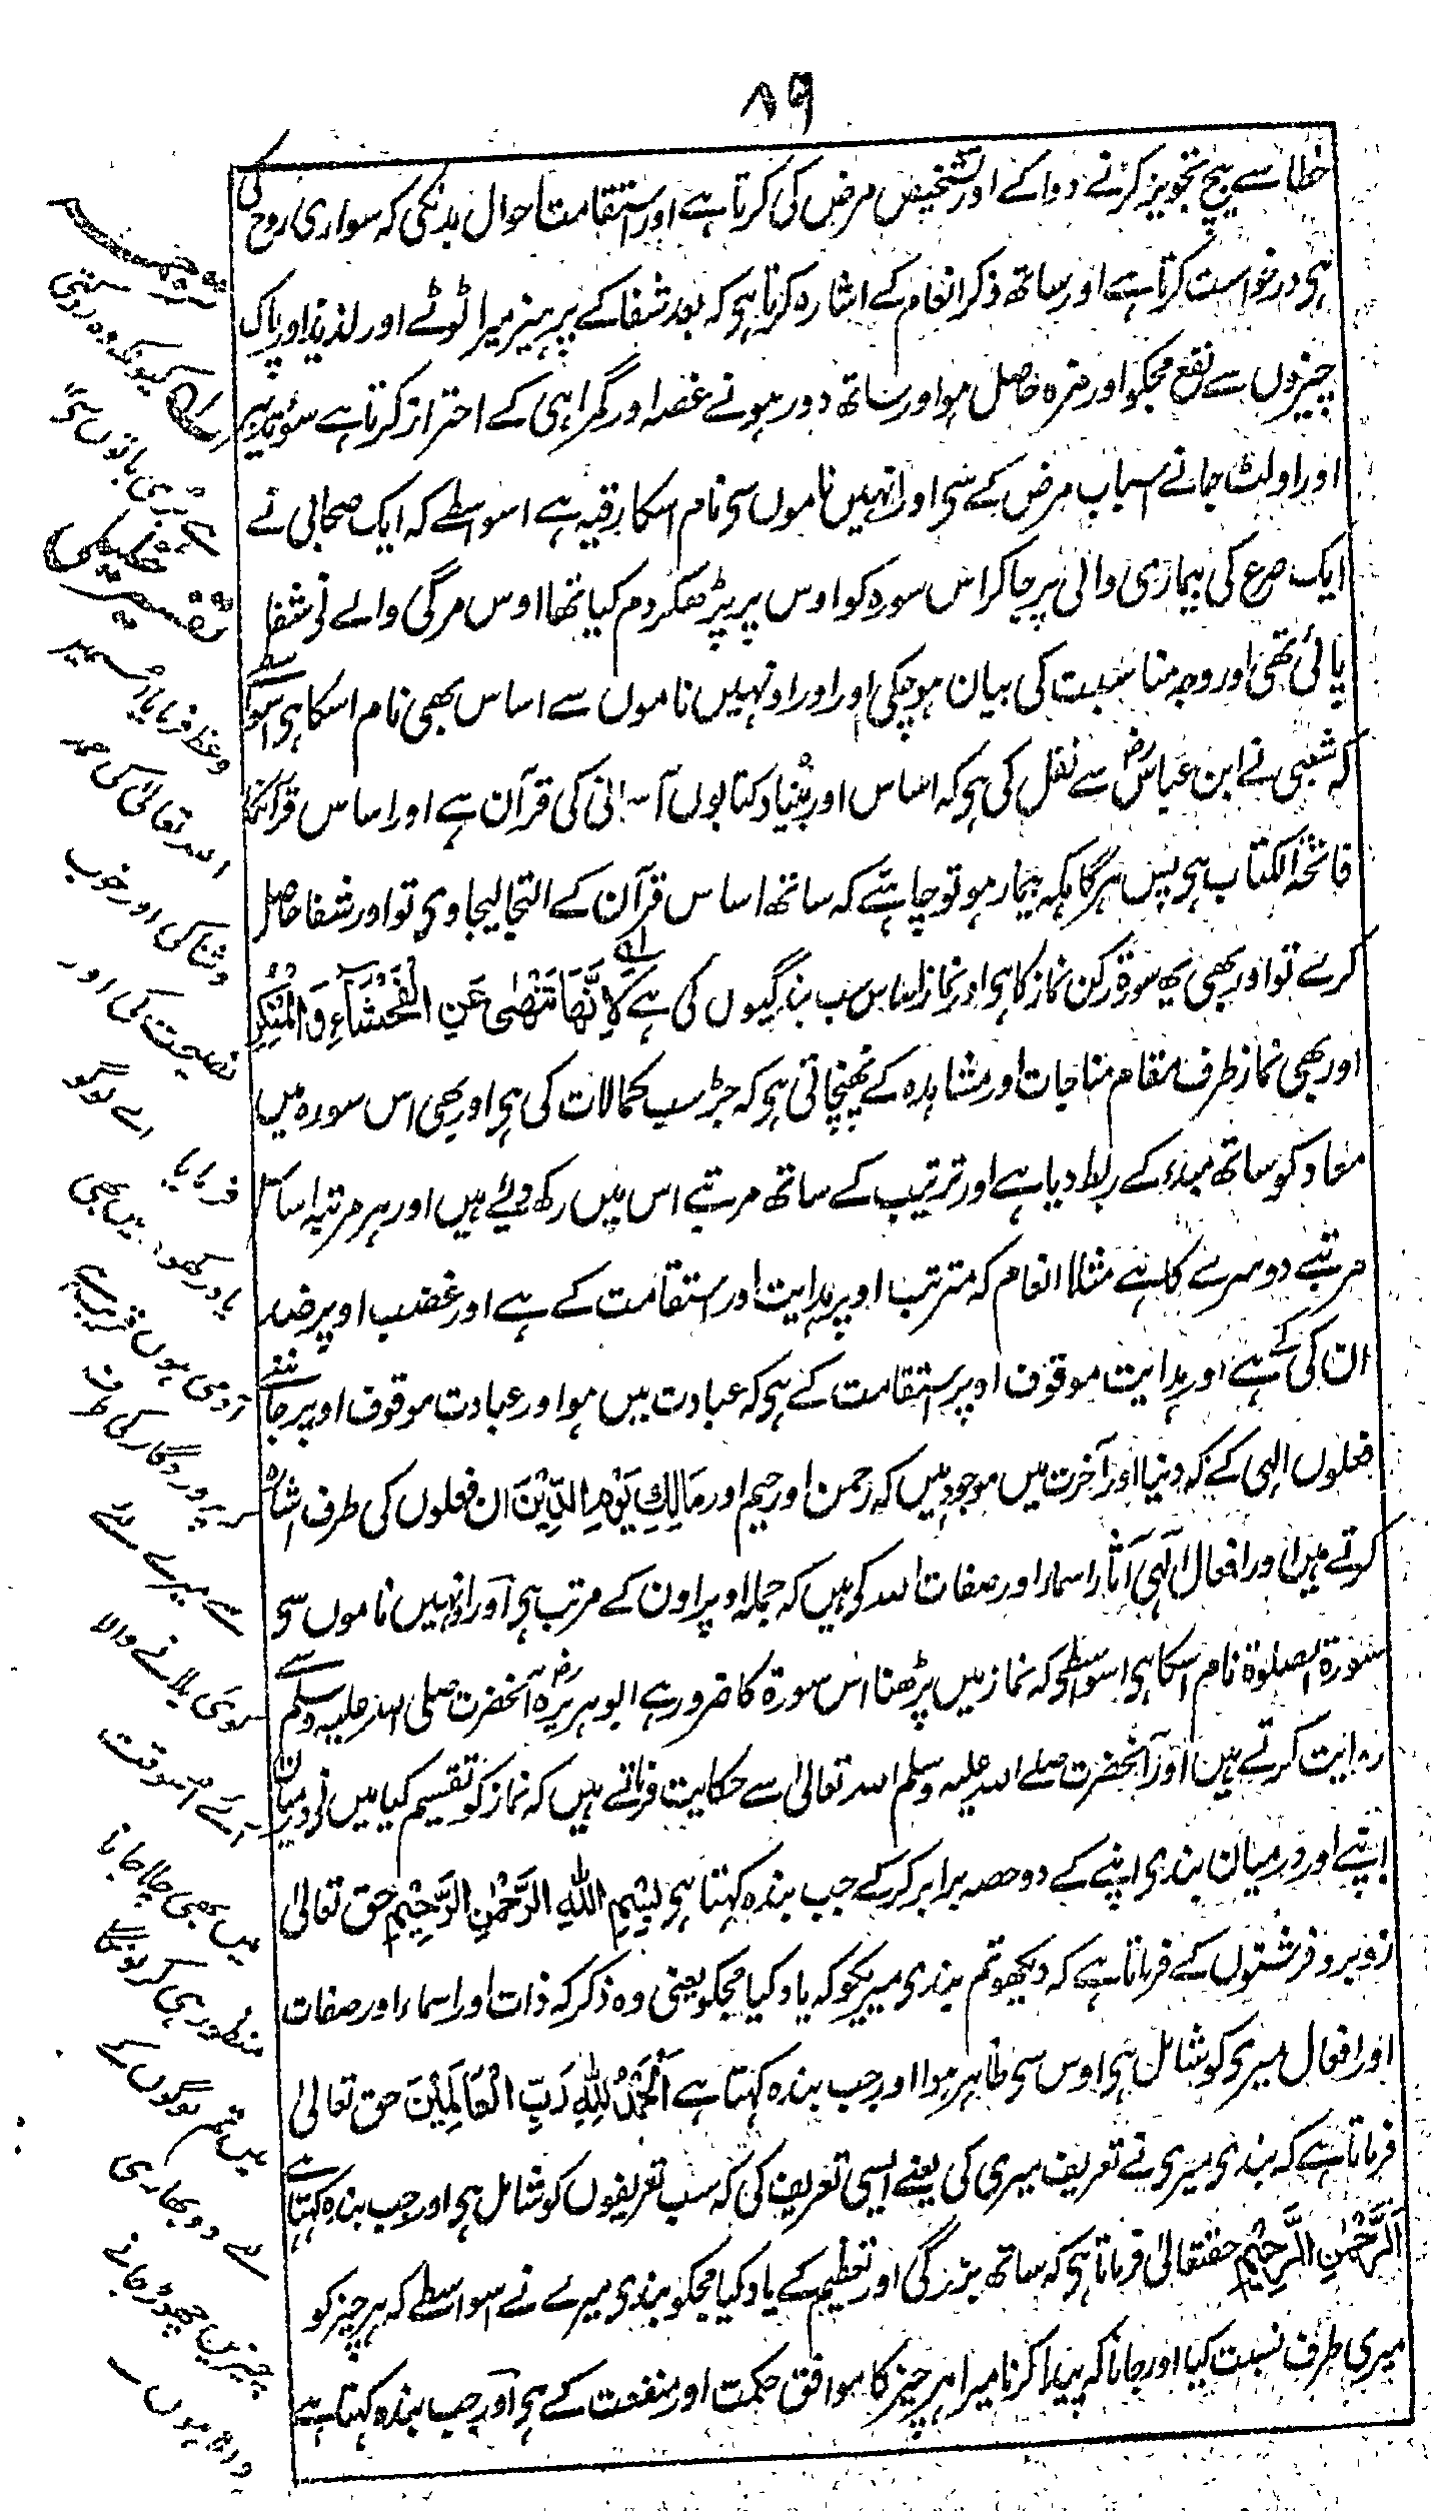 ٨٩
خطا سے بیچ تجویز کرنے دوا کے اور تشخیص مرض کی کرتا ہے اور استقامت احوال بدنکی کہ سواری روح کی
ہی درخواست کرتا ہے اور ساتھ ذکر انعام کے اشارہ کرتا ہی کہ بعد شفا کے پرہیز میرا ٹوٹے اور لذیذ اور پاک
چیزوں سے نفع مجکو اور مزہ حاصل ہو اور ساتھ دور ہونے غصہ اور گمراہی کے احتراز کرتا ہے سوٴ تدبیر
اور اولٹ جانے اسباب مرض کے سی اور انہیں ناموں سی نام اسکا رقیہ ہے اسواسطے کہ ایک صحابی نے
ایک صرع کی بیماری والی پر جاکر اس سورہ کو اوس پر پڑھکر دم کیا تھا اوس مرگی والے نی شفا
پائی تھی اور وجہ مناسبت کی بیان ہوچکی اور اور اونہیں ناموں سے اساس بھی نام اسکا ہی اسواسطے
کہ شعبی نے ابن عباس رض سے نقل کی ہی کہ اساس اور بُنیاد کتابوں آسمانی کی قرآن ہے اور اساس قرآنکا
فاتحۃ الکتاب ہی پس ہرگاہکہ بیمار ہو تو چاہئے کہ ساتھ اساس قرآن کے التجا لیجاوی تو اور شفا حاصل
کرے تو اور بھی یہ سورۃ رکن نماز کا ہی اور نماز اساس سب بندگیوں کی ہے لِاَنَّهَا تَنْهٰی عَنِ الْفَحْشَآءِ وَ الْمُنْكَرِ
اور بھی نماز طرف مقام مناجات اور مشاہدہ کے پہنچاتی ہی کہ جڑ سب کمالات کی ہی اور بھی اس سورہ میں
معاد کو ساتھ مبدء کے ربط دیا ہے اور ترتیب کے ساتھ مرتبے اس میں رکھ دیئے ہیں اور ہر مرتبہ اساس
مرتبے دوسرے کا ہے مثلا انعام کہ مترتب اوپر ہدایت اور استقامت کے ہے اور غضب اوپر ضد
ان کی کے ہے اور ہدایت موقوف اوپر استقامت کے ہی کہ عبادت میں ہو اور عبادت موقوف اوپر جاننے
فعلوں الہی کے کہ دنیا اور آخرت میں موجود ہیں کہ رحمن اور رحیم اور مَالِكِ یَوْمِ الدِّیْنَ ان فعلوں کی طرف اشارہ
کرتے ہیں اور افعال الٓہی آثار اسماء اور صفات اللہ کی ہیں کہ جملہ اوپر اون کے مرتب ہی اور انہیں ناموں سی
سورۃ الصلوۃ نام اسکا ہی اسواسطے کہ نماز میں پڑھنا اس سورۃ کا ضرور ہے ابو ہریرہ رض آنحضرت صلی اللہ علیہ وسلم سے
روایت کرتے ہیں اور آنحضرت صلے اللہ علیہ وسلم اللہ تعالیٰ سے حکایت فرماتے ہیں کہ نماز کو تقسیم کیا میں نی درمیان
اپنے اور درمیان بندی اپنے کے دو حصہ برابر کرکے جب بندہ کہتا ہی بِسْمِ اللّٰهِ الرَّحْمٰنِ الرَّحِیْمِ حق تعالیٰ
روبرو فرشتوں کے فرماتا ہے کہ دیکھو تم بندی میریکو کہ یاد کیا مجکو یعنی وہ ذکر کہ ذات اور اسماء اور صفات
اور افعال میری کو شامل ہی اوس سی ظاہر ہوا اور جب بندہ کہتا ہے اَلْحَمْدُ لِلّٰهِ رَبِّ الْعَالَمِیْنَ حق تعالیٰ
فرماتا ہے کہ بندی میری نے تعریف میری کی یعنے ایسی تعریف کی کہ سب تعریفوں کو شامل ہی اور جب بندہ کہتا ہے
اَلرَّحْمٰنِ الرَّحِیْمِ حقتعالیٰ فرماتا ہی کہ ساتھ بزرگی اور تعظیم کے یاد کیا مجکو بندی میرے نے اسواسطے کہ ہر چیز کو
میری طرف نسبت کیا اور جانا کہ پیدا کرنا میرا ہر چیز کا موافق حکمت اور منفعت کے ہی اور جب بندہ کہتا ہے
وعظ فرمایا
اللہ تعالیٰ کی حمد
و ثنا کی اور خوب
نصیحت کی اور
فرمایا اے لوگو
یاد رکھو میں بھی
آدمی ہوں قریب ہے
پروردگار کی طرف
سے میرے لئے
کوئی بلانے والا
آئے اسوقت
میں بھی چلا جانا
منظور ہی کرلونگا
میں تم لوگوں کے
لئے دو بھاری
چیزیں چھوڑ جانے
والا ہوں